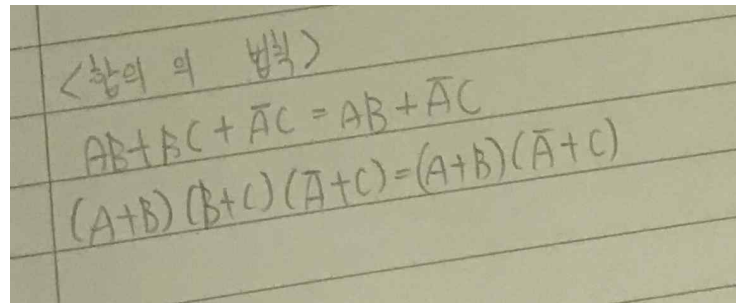 <합의 의 법칙>
AB+BC+A̅C = AB+A̅C
(A+B)(B+C)(A̅+C)=(A+B)(A̅+C)